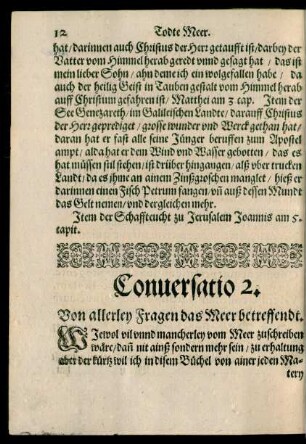 12 Todte Meer.
hat / darinnen auch Christus der Herr getaufft ist / darbey der
Vatter vom Himmel herab geredt vnnd gesagt hat / das ist
mein lieber Sohn / ahn dem ich ein wolgefallen habe / da
auch der heilig Geist in Tauben gestalt vom Himmel herab
auff Christum gefahren ist / Matthei am 3 cap. Item der
See Genezareth / im Galileischen Landte / darauff Christus
der Herr geprediget / grosse wunder vnd Werck gethan hat /
daran hat er fast alle seine Jünger beruffen zum Apostel
ampt / alda hat er dem Wind vnd Wasser gebotten / das es
hat müssen stil stehen / ist drüber hingangen / alß vber trucken
Landt / da es ihme an einem Zinßgroschen manglet / hieß er
darinnen einen Fisch Petrum fangen / vñ auß dessen Munde
das Gelt nemen / vnd dergleichen mehr.
Item der Schaffteucht zu Jerusalem Joannis am 5.
capit.
Conuersatio 2.
Von allerley Fragen das Meer betreffendt.
WJewol vil vnnd mancherley vom Meer zuschreiben
wäre / dañ nit ainß sondern mehr sein / zu erhaltung
aber der kürtz wil ich in disem Büchel von ainer jeden Ma-
tery